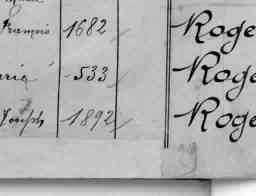 François 1682 Roge
aria 533 Roge
Joseph 1892 Roge